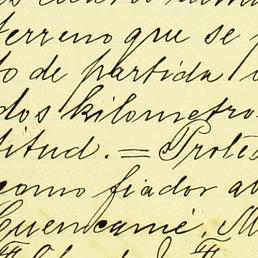 terreno que se
to de partida
dos kilometro
titud. = Protes
como fiador
Cuencamé, M